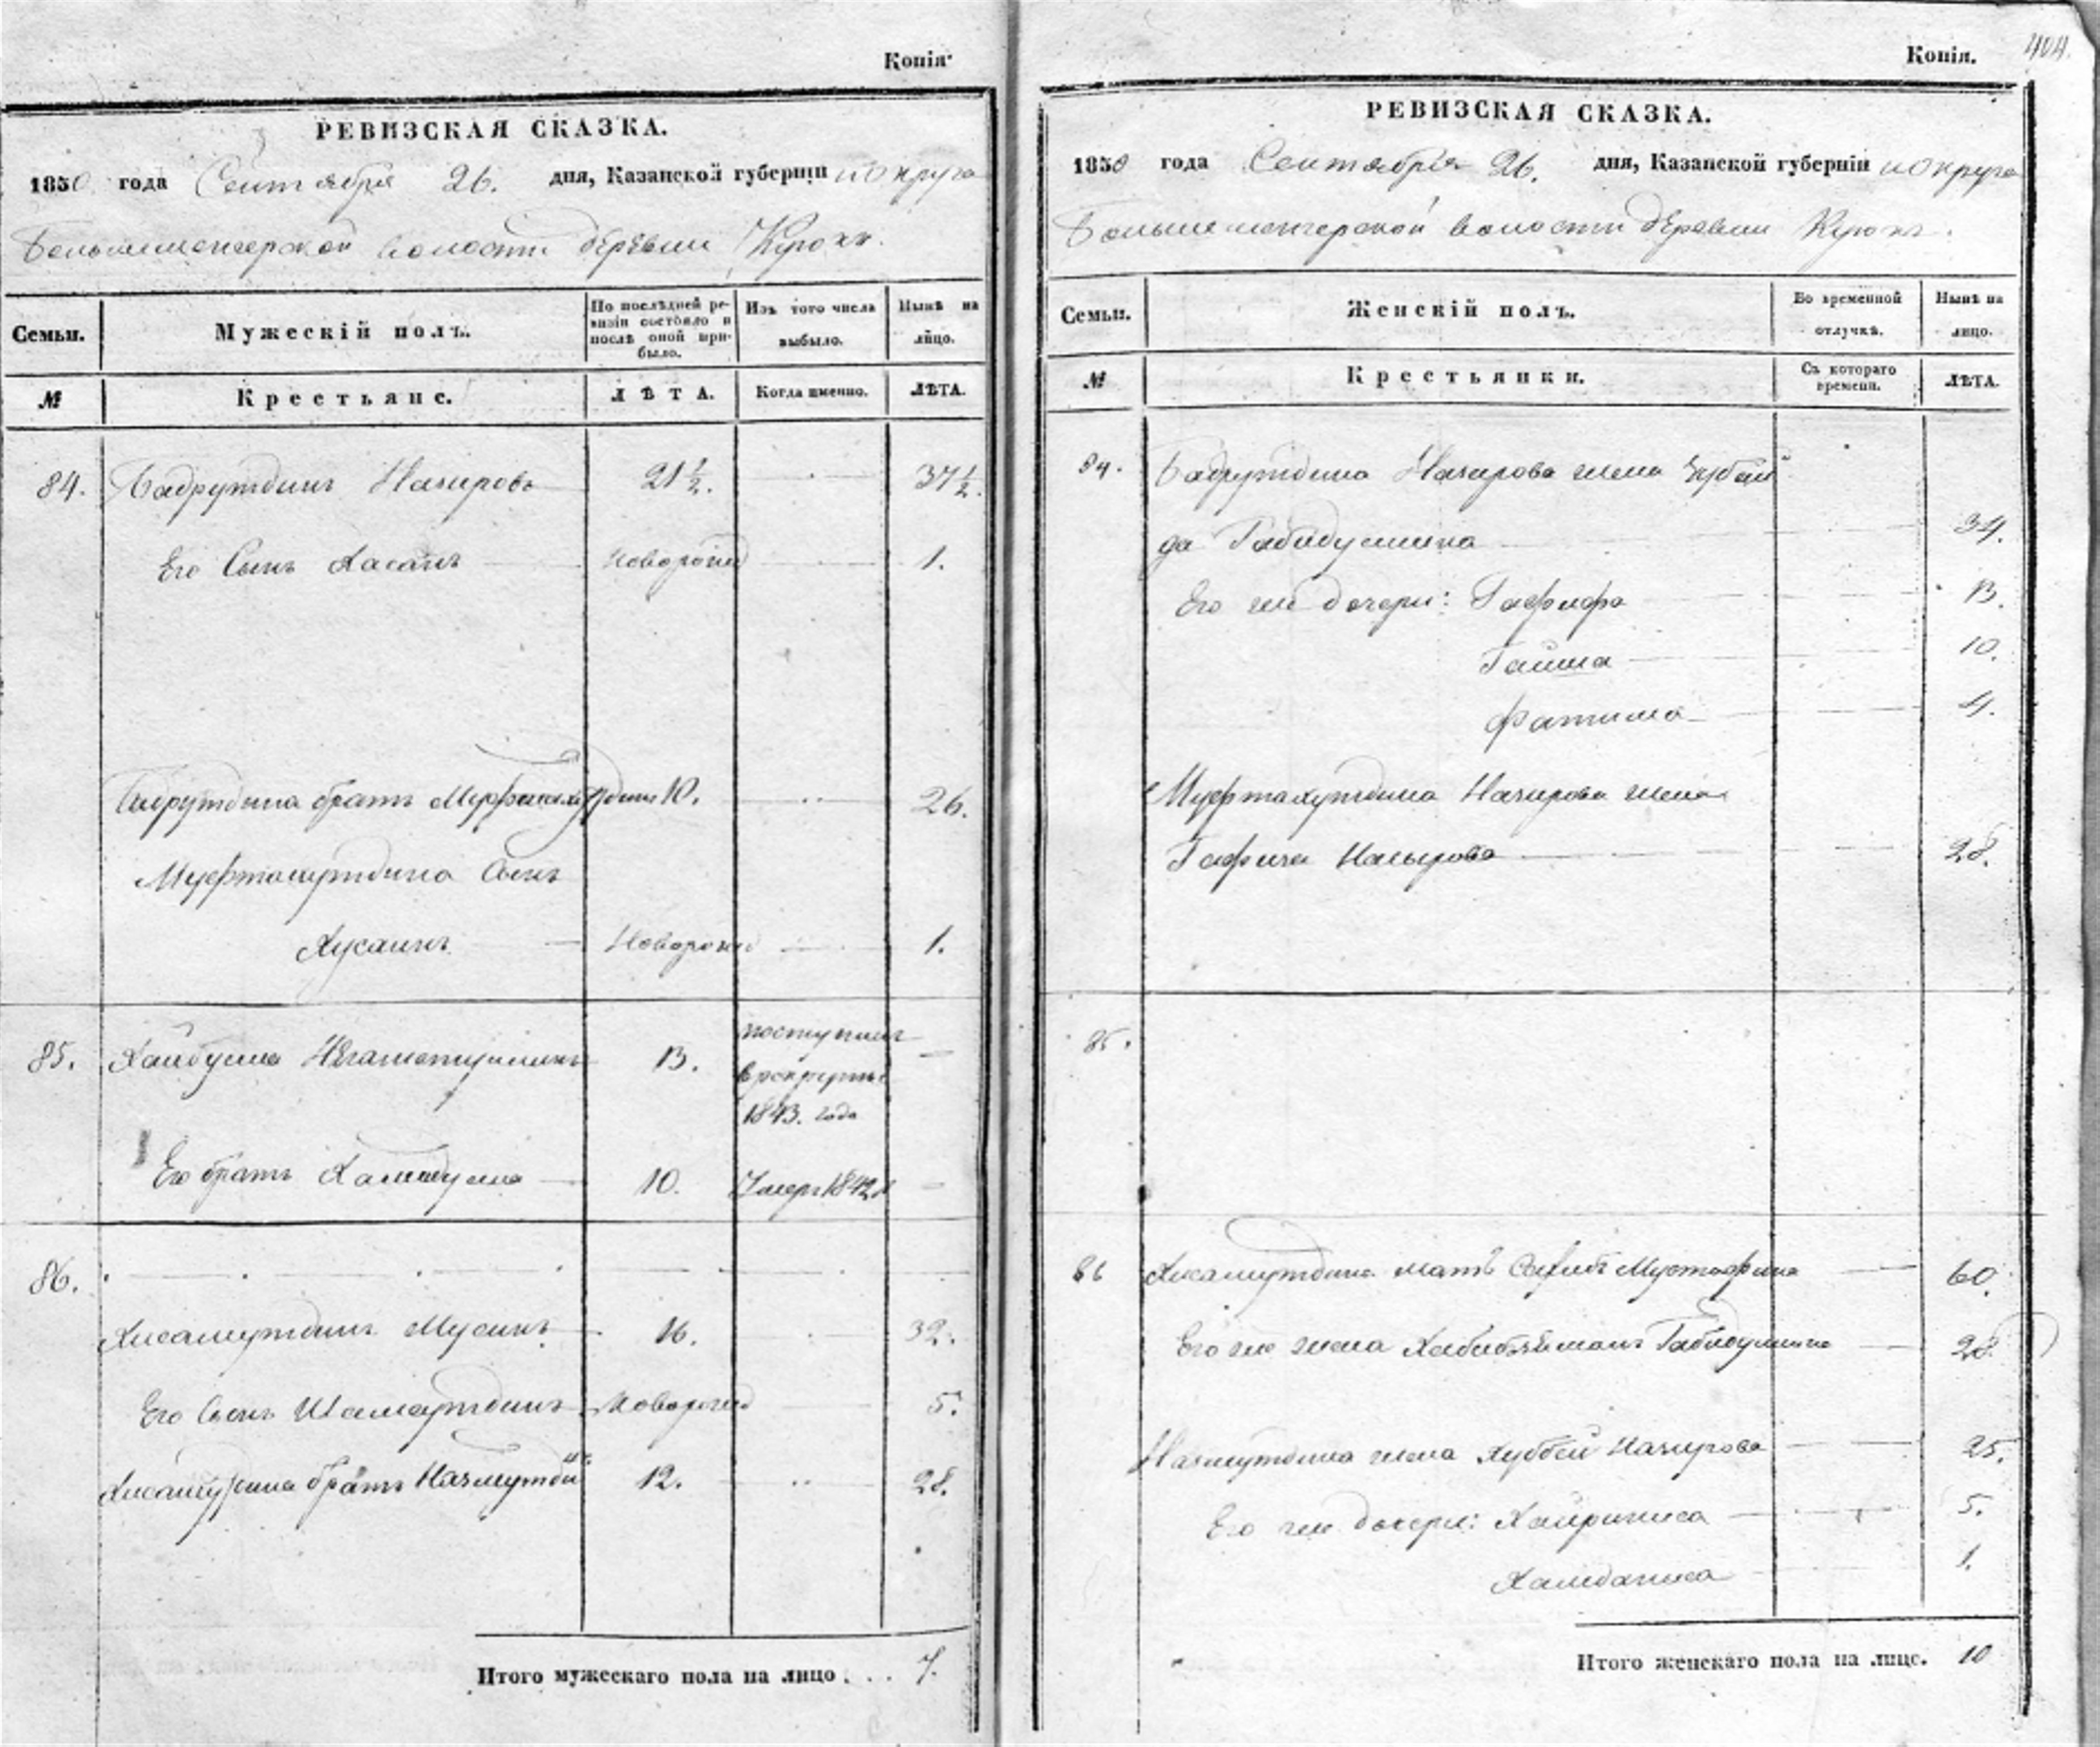 Копія
РЕВИЗСКАЯ СКАЗКА.
1850 года Сентября 26. дня, Казанской губерніи и округа
Большеменгерской волости деревни Курохъ.
Семьи.
Мужескій полъ.
По послѣдней ревизіи состояло и послѣ оной прибыло.
Изъ того числа выбыло.
Нынѣ на лицо.
№
Крестьяне.
ЛѢТА.
Когда именно.
ЛѢТА.
84. Бадрутдинъ Назировъ 21 1/2. 37 1/2.
Его Сынъ Хасанъ Новорожд 1.
Бадрутдина братъ Мифтахутдинъ 10. 26.
Муфтахутдина Сынъ
Хусаинъ Новорожд 1.
85. Хайбулла Негаметуллинъ 13. поступилъ
в рекруты
1843. года
Его братъ 10. Умеръ 1842
86.
Хисамутдинъ Мусинъ 16. 32.
Его Сынъ Шамсутдинъ Новорожд 5.
Хисамутдина братъ Назмутдинъ 12. 28.
Итого мужескаго пола на лицо . . . 7.
Копія. 404.
РЕВИЗСКАЯ СКАЗКА.
1850 года Сентября 26. дня, Казанской губерніи и округа
Большеменгерской волости деревни Курохъ.
Семьи.
Женскій полъ.
Во временной отлучкѣ.
Нынѣ на лицо.
№
Крестьянки.
Съ котораго времени.
ЛѢТА.
84. Бадрутдина Назирова жена Зубай
да Габидуллина 34.
Его же дочери: Гафифа 13.
Гайша 10.
Фатима 4.
Муфтахутдина Назирова жена
Гафиза Насырова 28.
85.
86 Хисамутдина мать Мустафина 60.
Его же жена Хабибзямалъ Габидуллина 28.
Назмутдина жена Хуббей Назирова 25.
Его же дочери: Хайриниса 5.
Хамданиса 1.
Итого женскаго пола на лицо. 10